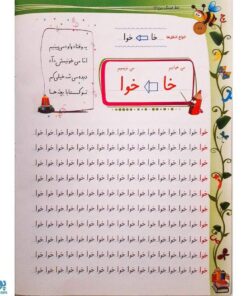 خا ⇦ خوا
می خوانیم می نویسیم
خا ⇦ خوا
یه وقتا واو می‌بینیم
خوا خوا خوا خوا خوا خوا خوا خوا خوا خوا خوا خوا خوا خوا
خوا خوا خوا خوا خوا خوا خوا خوا خوا خوا خوا خوا خوا خوا
خوا خوا خوا خوا خوا خوا خوا خوا خوا خوا خوا خوا خوا خوا
خوا خوا خوا خوا خوا خوا خوا خوا خوا خوا خوا خوا خوا خوا
خوا خوا خوا خوا خوا خوا خوا خوا خوا خوا خوا خوا خوا خوا
خوا خوا خوا خوا خوا خوا خوا خوا خوا خوا خوا خوا خوا خوا
خوا خوا خوا خوا خوا خوا خوا خوا خوا خوا خوا خوا خوا خوا
خوا خوا خوا خوا خوا خوا خوا خوا خوا خوا خوا خوا خوا خوا
خوا خوا خوا خوا خوا خوا خوا خوا خوا خوا خوا خوا خوا خوا
خوا خوا خوا خوا خوا خوا خوا خوا خوا خوا خوا خوا خوا خوا